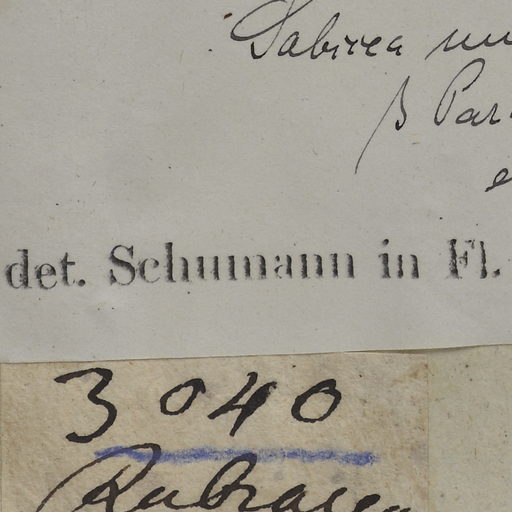 Sabicea
β Par
det. Schumann in Fl.
3040
Rubiacea